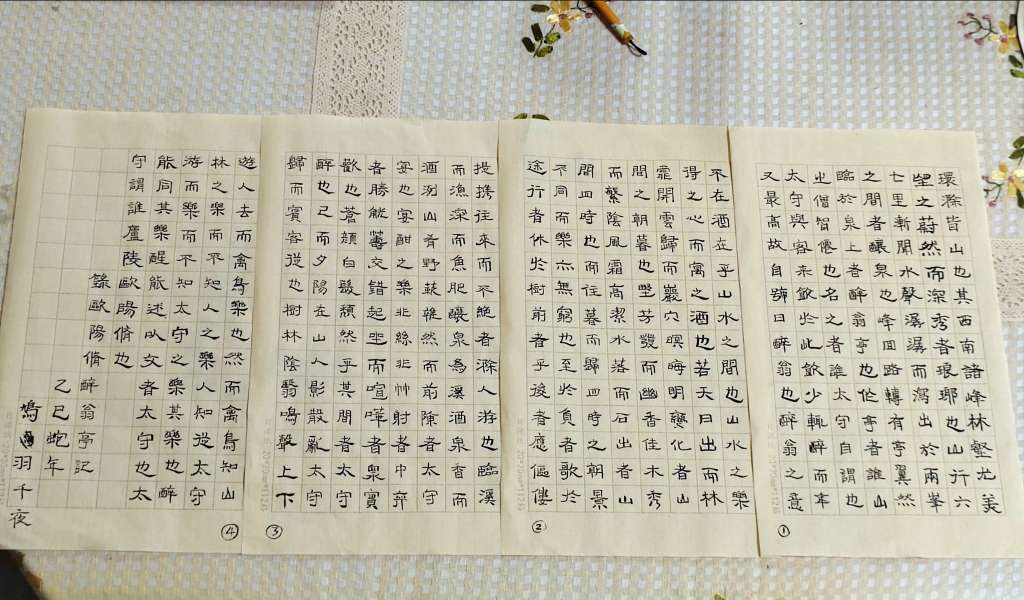 環滁皆山也其西南諸峰林壑尤美
望之蔚然而深秀者琅耶也山行六
七里漸聞水聲潺潺而瀉出於兩峯
之間者釀泉也峰回路轉有亭翼然
臨於泉上者醉翁亭也作亭者誰山
之僧智僊也名之者誰太守自謂也
太守與客來飲於此飲少輒醉而年
又最高故自號曰醉翁也醉翁之意
①
不在酒在乎山水之間也山水之樂
得之心而寓之酒也若夫日出而林
霏開雲歸而巖穴暝晦明變化者山
間之朝暮也野芳發而幽香佳木秀
而繁陰風霜高潔水落而石出者山
間四時也而往暮而歸四時之朝景
不同而樂亦無窮也至於負者歌於
途行者休於樹前者乎後者應傴僂
②
提携往來而不絶者滁人游也臨溪
而漁深而魚肥釀泉為溪酒泉香而
酒洌山肴野蔌雜然而前陳者太守
宴也宴酣之樂非絲非竹射者中弈
者勝觥籌交錯起坐而喧嘩者眾賓
歡也蒼顏白髮頹然乎其間者太守
醉也已而夕陽在山人影散亂太守
歸而賓客從也樹林陰翳鳴聲上下
③
遊人去而禽鳥樂也然而禽鳥知山
林之樂而不知人之樂人知從太守
游而樂而不知太守之樂其樂也醉
能同其樂醒能述以文者太守也太
守謂誰廬陵歐陽脩也
錄歐陽脩醉翁亭記
乙巳蛇年
鳩羽千夜
④